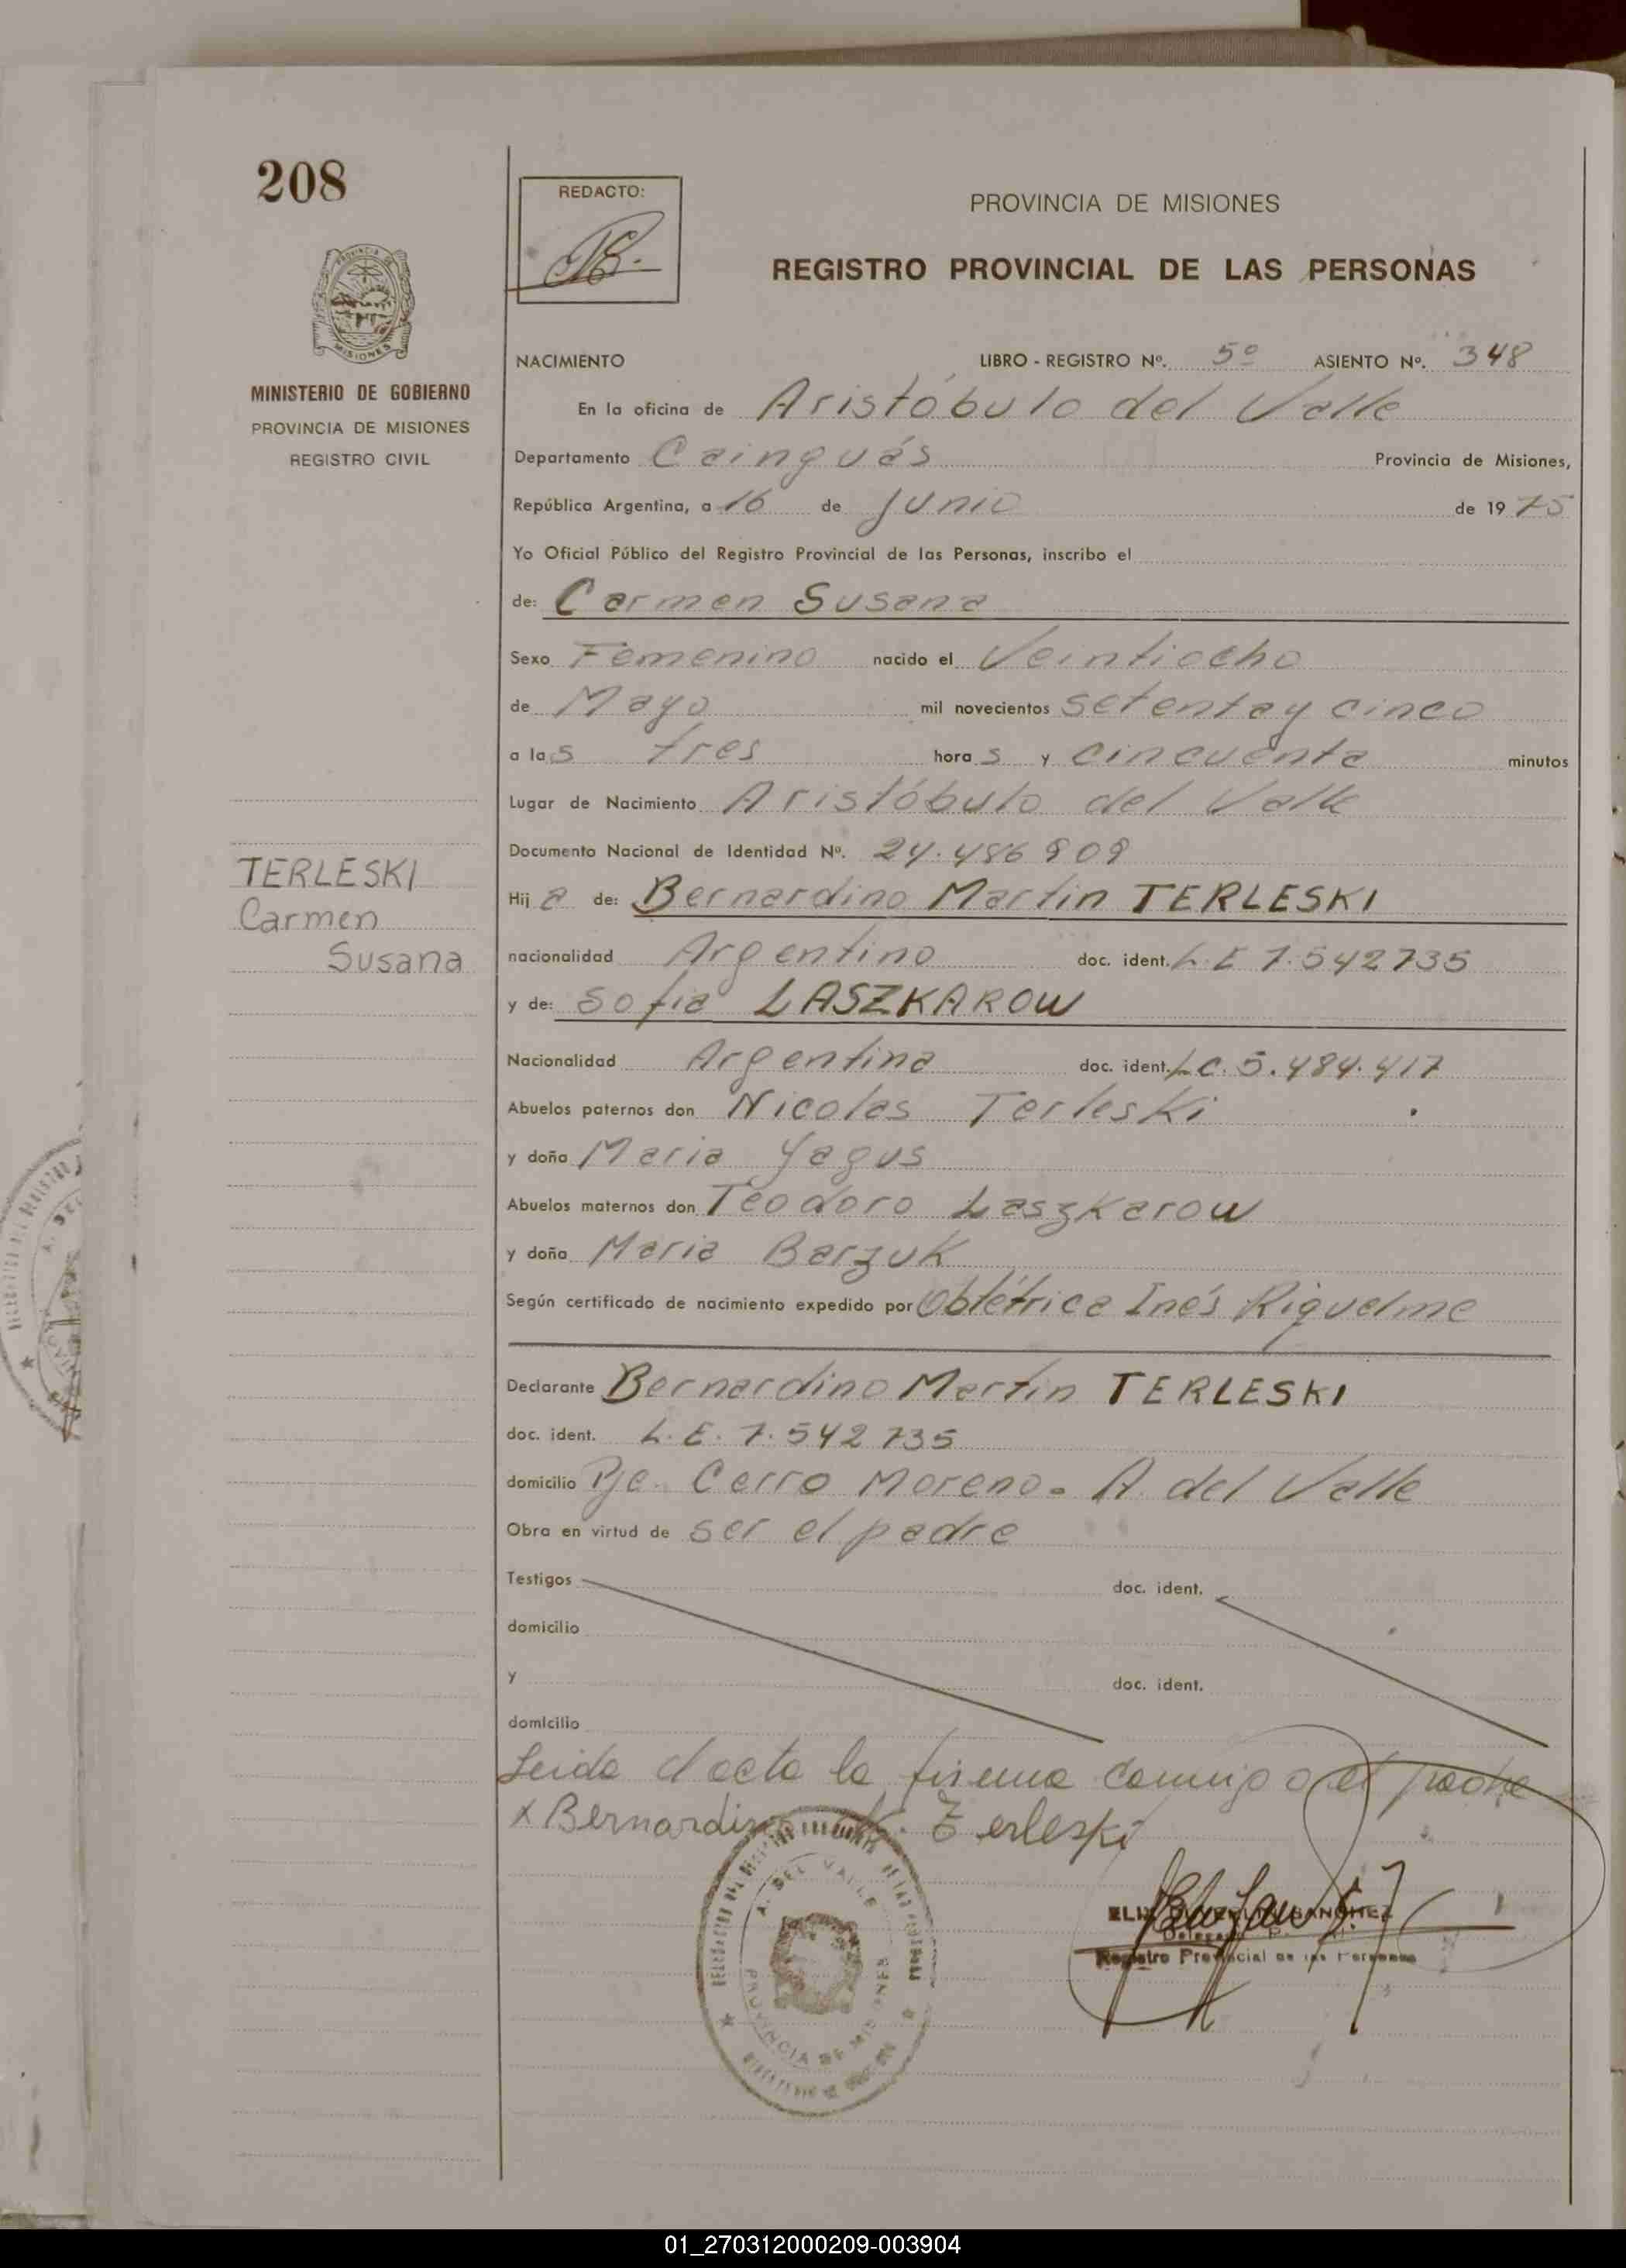 208
REDACTO:
PROVINCIA DE MISIONES
REGISTRO PROVINCIAL DE LAS PERSONAS
MISIONES
MINISTERIO DE GOBIERNO
PROVINCIA DE MISIONES
REGISTRO CIVIL
NACIMIENTO LIBRO - REGISTRO Nº. 5º ASIENTO Nº. 348
En la oficina de Aristóbulo del Valle
Departamento Cainguás Provincia de Misiones,
República Argentina, a 16 de Junio de 1975
Yo Oficial Público del Registro Provincial de las Personas, inscribo el
de: Carmen Susana
Sexo Femenino nacido el Veintiocho
de Mayo mil novecientos setenta y cinco
a las tres horas y cincuenta minutos
Lugar de Nacimiento Aristóbulo del Valle
Documento Nacional de Identidad Nº. 24.486 909
TERLESKI
Carmen
Susana
Hija de: Bernardino Martin TERLESKI
nacionalidad Argentino doc. ident. L.E 7.542735
y de: Sofia LASZKAROW
Nacionalidad Argentina doc. ident. L.C. 5.484.417
Abuelos paternos don Nicolas Terleski
y doña Maria Yagus
Abuelos maternos don Teodoro Laszkarow
y doña Maria Barzuk
Según certificado de nacimiento expedido por Obtétrica Inés Riquelme
Declarante Bernardino Martin TERLESKI
doc. ident. L.E. 7.542 735
domicilio Pje. Cerro Moreno. A. del Valle
Obra en virtud de ser el padre
Testigos doc. ident.
domicilio
y doc. ident.
domicilio
Leida el acta la firma conmigo el padre
x Bernardino Terleski
A. DEL VALLE
PROVINCIA DE MISIONES
SANCHEZ
Registro Provincial de las Personas
01_270312000209-003904